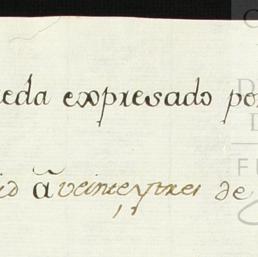 eda expresado po
id a veinteytres de